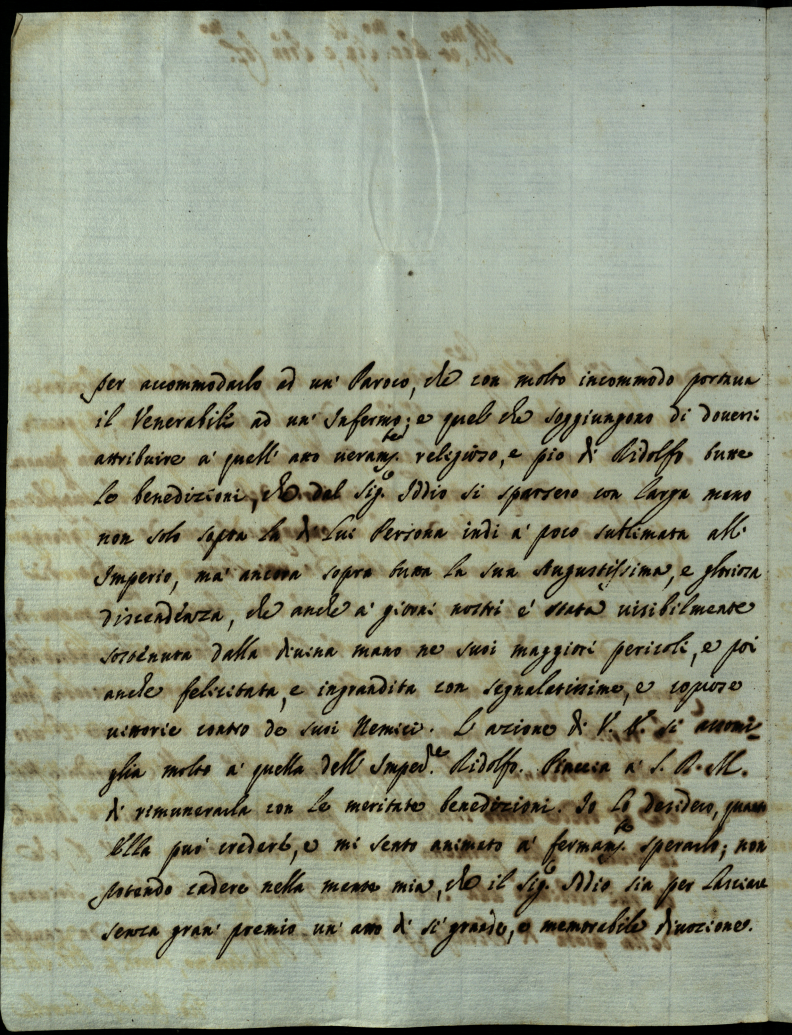 per accommodarlo ad un' Paroco, che con molto incommodo portava
il Venerabile ad un' Infermo; e quel che soggiungono di doversi
attribuire a' quell' atto veram.te religioso, e pio di Ridolfo tutte
le benedizioni, che dal Sig.e Iddio si sparsero con larga mano
non solo sopra la di Lui Persona indi a' poco sublimata all'
Imperio, ma' ancora sopra tutta la sua Augustissima, e gloriosa
discendenza, che anche a' giorni nostri é stata visibilmente
sostenuta dalla divina mano ne suoi maggiori pericoli, e poi
anche felicitata, e ingrandita con segnalatissime, e copiose
vittorie contro de suoi Nemici. L'azione di V. si assomi-
glia molto a' quella dell' Imped.e Ridolfo. Piaccia a' S. D. M.
di rimunerarla con le meritate benedizioni. Io lo desidero, quanto
Ella può credere, e mi sento animato a' fermam.te sperarlo; non
potendo cadere nella mente mia, che il Sig.e Iddio sia per lasciare
senza gran' premio un' atto di si' grande, e memorabile divozione.